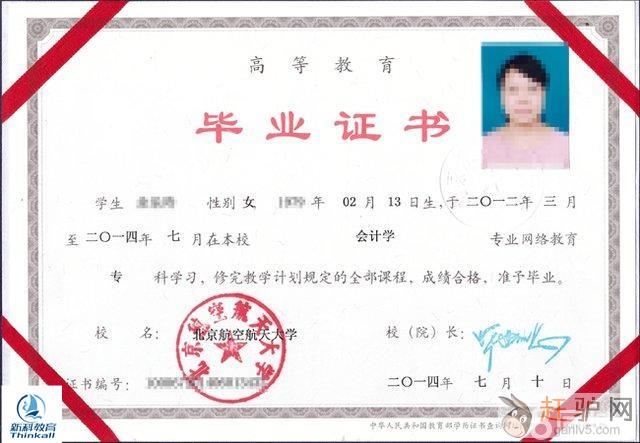 高等教育
毕业证书
学生 性别 女 年 02 月 13 日生，于二〇一二年 三 月
至二〇一四年 七 月在本校 会计学 专业网络教育
专 科学习，修完教学计划规定的全部课程，成绩合格，准予毕业。
校 名： 北京航空航天大学 校（院）长：
北京航空航天大学
证书编号： 二〇一四年 七 月 十 日
中华人民共和国教育部学历证书查询
新科教育
Thinkall
赶驴网
ganlv5.com